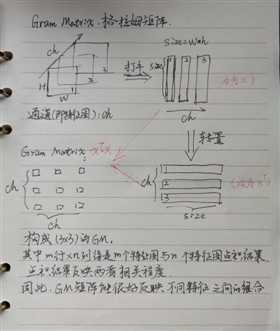 Gram Matrix. 格拉姆矩阵.
ch
size=W×H
打平
size
1 2 3
H
W
ch
通道(即特征图): ch
转置
Gram Matrix: xᵀx
ch
1
2
3
ch
size
ch
构成 (3×3) 的GM.
其中 m行×n列 得是m个特征图与n个特征图点积结果
点积结果反映的着相关程度.
因此, GM矩阵能很好反映 不同特征之间的组合